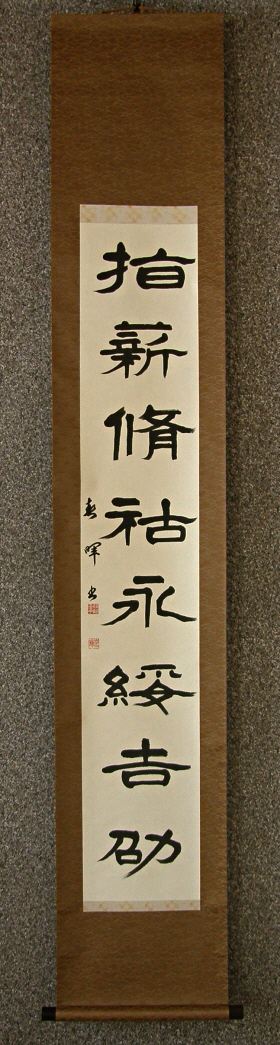 指薪脩祜永綏吉劭
春暉书